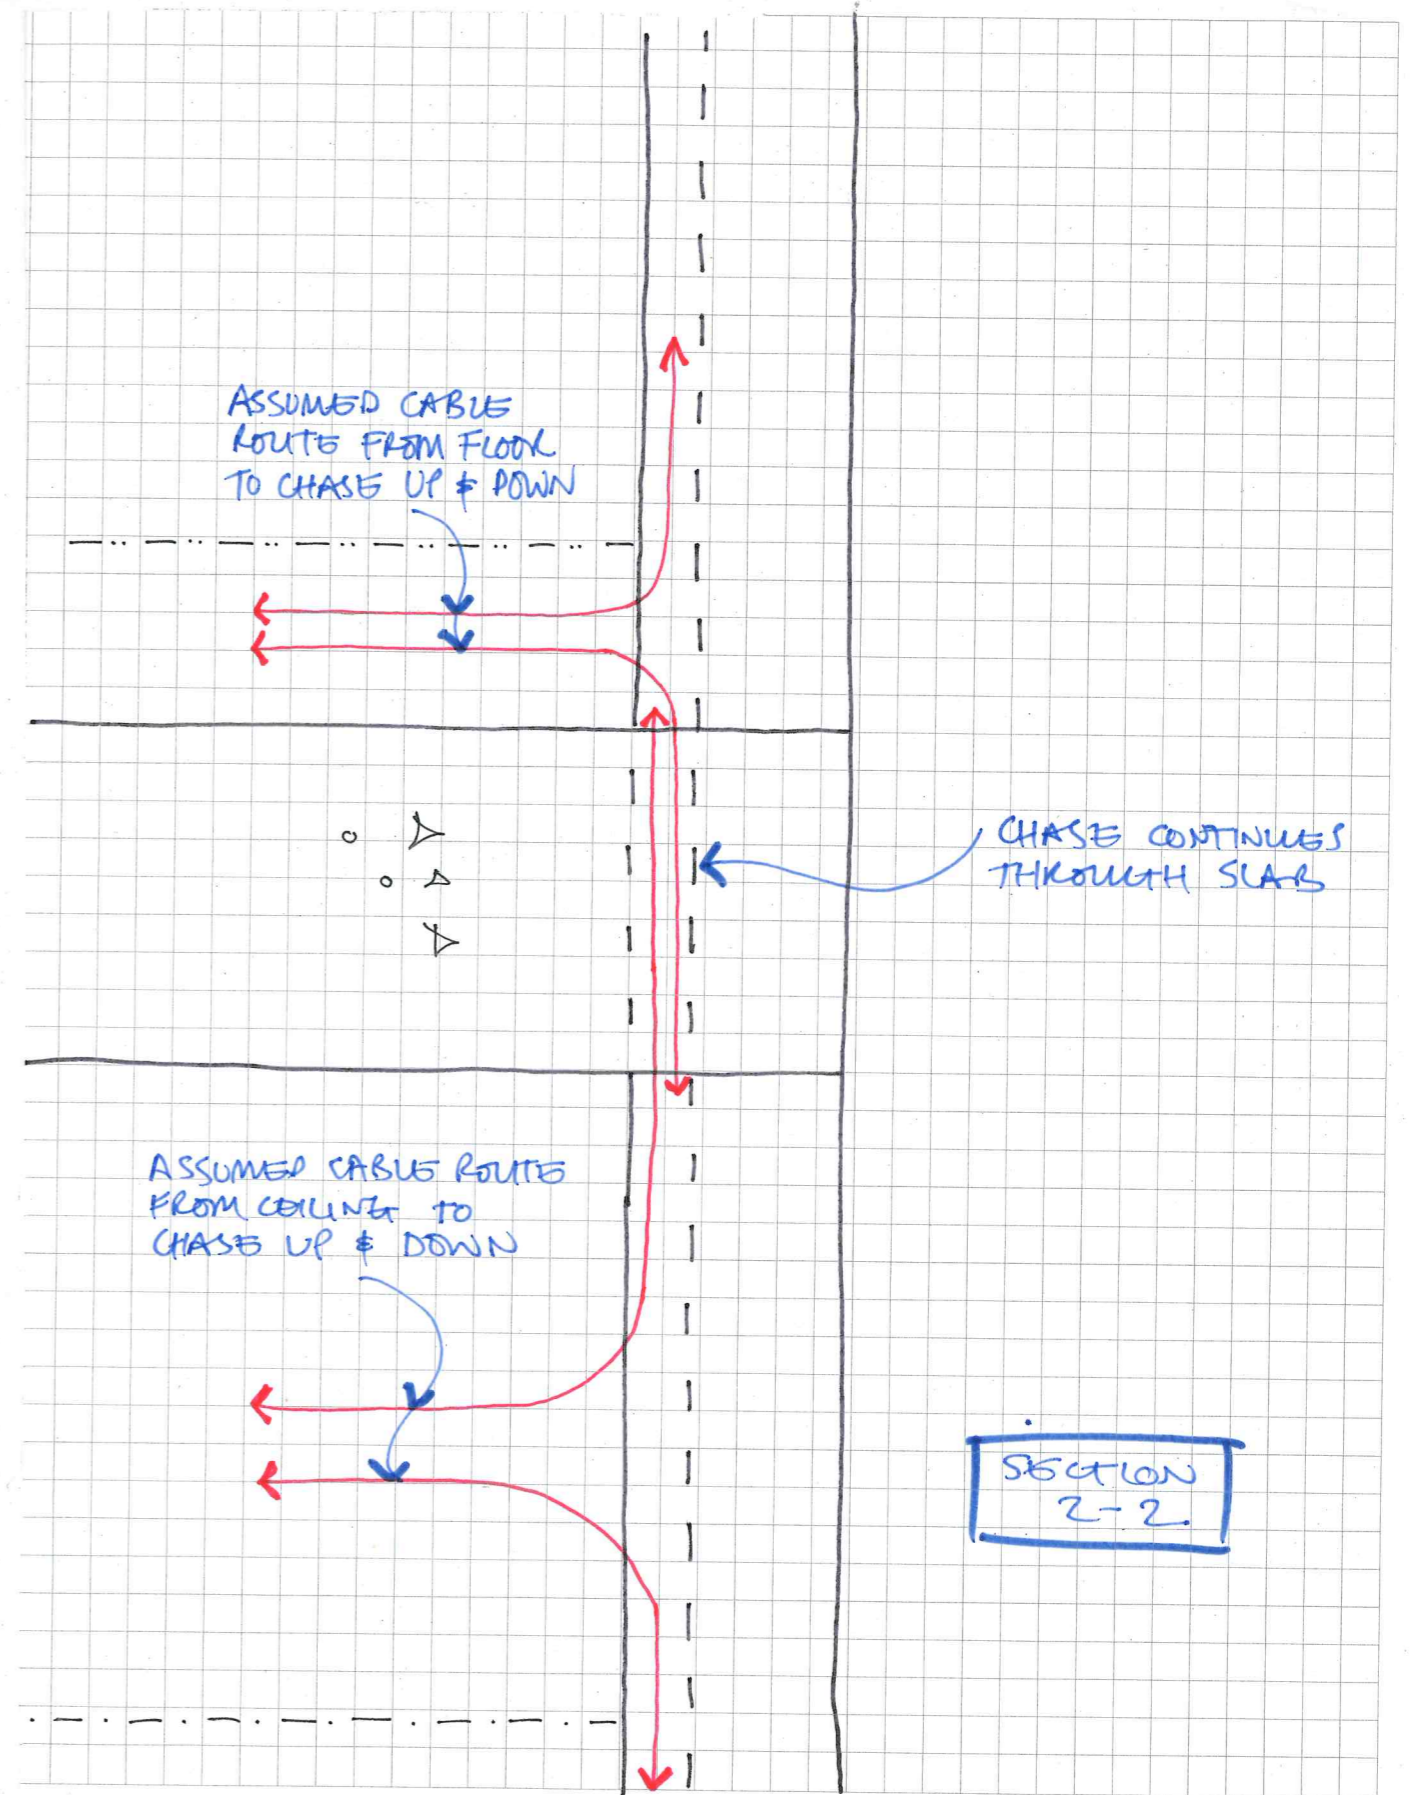 ASSUMED CABLE
ROUTE FROM FLOOR
TO CHASE UP & DOWN
CHASE CONTINUES
THROUGH SLAB
ASSUMED CABLE ROUTE
FROM CEILING TO
CHASE UP & DOWN
SECTION
2-2.